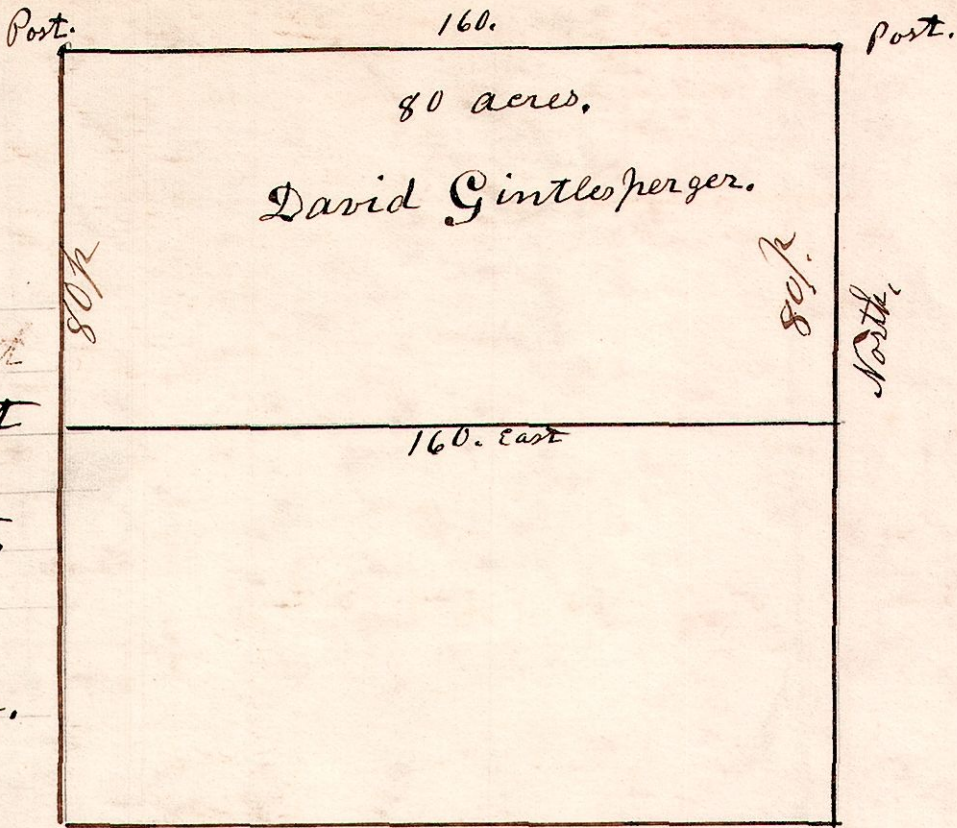 Post. 160. Post.
80 acres.
David Gintlesperger.
80/p
80/p.
North.
160. East